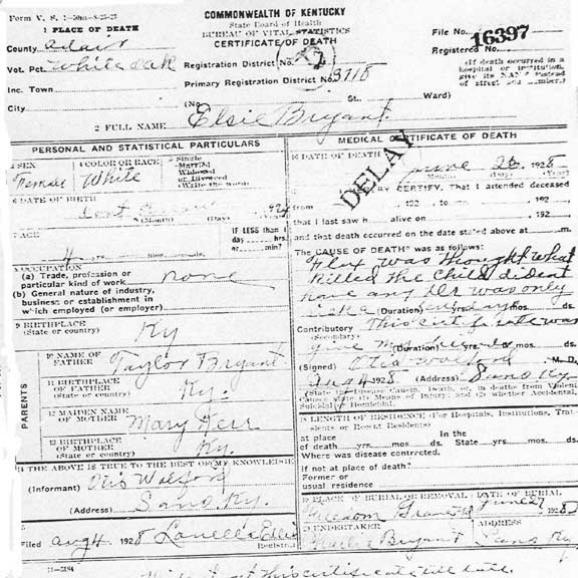 Form V. S.
COMMONWEALTH OF KENTUCKY
State Board of Health
BUREAU OF VITAL STATISTICS
CERTIFICATE OF DEATH
1 PLACE OF DEATH
County Adair
Vot. Pct. White Oak
Inc. Town
City
Registration District No.
Primary Registration District No. 3718
(No. St. Ward)
File No. 16397
Registered No.
(If death occurred in a
hospital or institution,
give its NAME instead
of street and number.)
2 FULL NAME Elsie Bryant
PERSONAL AND STATISTICAL PARTICULARS
3 SEX
Female
4 COLOR OR RACE
White
5 Single
Married
Widowed
or Divorced
(Write the word)
6 DATE OF BIRTH
(Month) (Day)
7 AGE
4
IF LESS than 1
day hrs.
or min?
8 OCCUPATION
(a) Trade, profession or
particular kind of work none
(b) General nature of industry,
business or establishment in
which employed (or employer)
9 BIRTHPLACE
(State or country) Ky
PARENTS
10 NAME OF
FATHER Taylor Bryant
11 BIRTHPLACE
OF FATHER Ky.
(State or country)
12 MAIDEN NAME
OF MOTHER Mary Kerr
13 BIRTHPLACE
OF MOTHER Ky.
(State or country)
14 THE ABOVE IS TRUE TO THE BEST OF MY KNOWLEDGE
(Informant) Otis Wolford
(Address) Sano, Ky.
15
Filed Aug 4 1928
Registrar
DELAY
MEDICAL CERTIFICATE OF DEATH
16 DATE OF DEATH
June 26 1928
(Month) (Day) (Year)
CERTIFY, That I attended deceased
from 192 to 192
that I last saw h alive on 192
and that death occurred on the date stated above at m.
The CAUSE OF DEATH was as follows:
Flux was thought what
killed the child dident
have any Dr was only
(Duration) yrs. mos. ds.
Contributory This
(Secondary)
(Duration) yrs. mos. ds.
(Signed) Otis Wolford M. D.
Aug 4 1928 (Address) Sano Ky
State the Disease Causing Death, or, in deaths from Violent
Causes state (1) Means of Injury; and (2) whether Accidental,
Suicidal or Homicidal.
18 LENGTH OF RESIDENCE (For Hospitals, Institutions, Transients
or Recent Residents)
at place In the
of death yrs. mos. ds. State yrs. mos. ds.
Where was disease contracted.
If not at place of death?
Former or
usual residence
19 PLACE OF BURIAL OR REMOVAL
DATE OF BURIAL
June 27 1928
20 UNDERTAKER
Bryant
ADDRESS
Sano Ky
11-3184